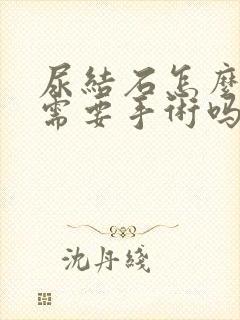 尿結石怎麼
需要手術吗
沈丹綫